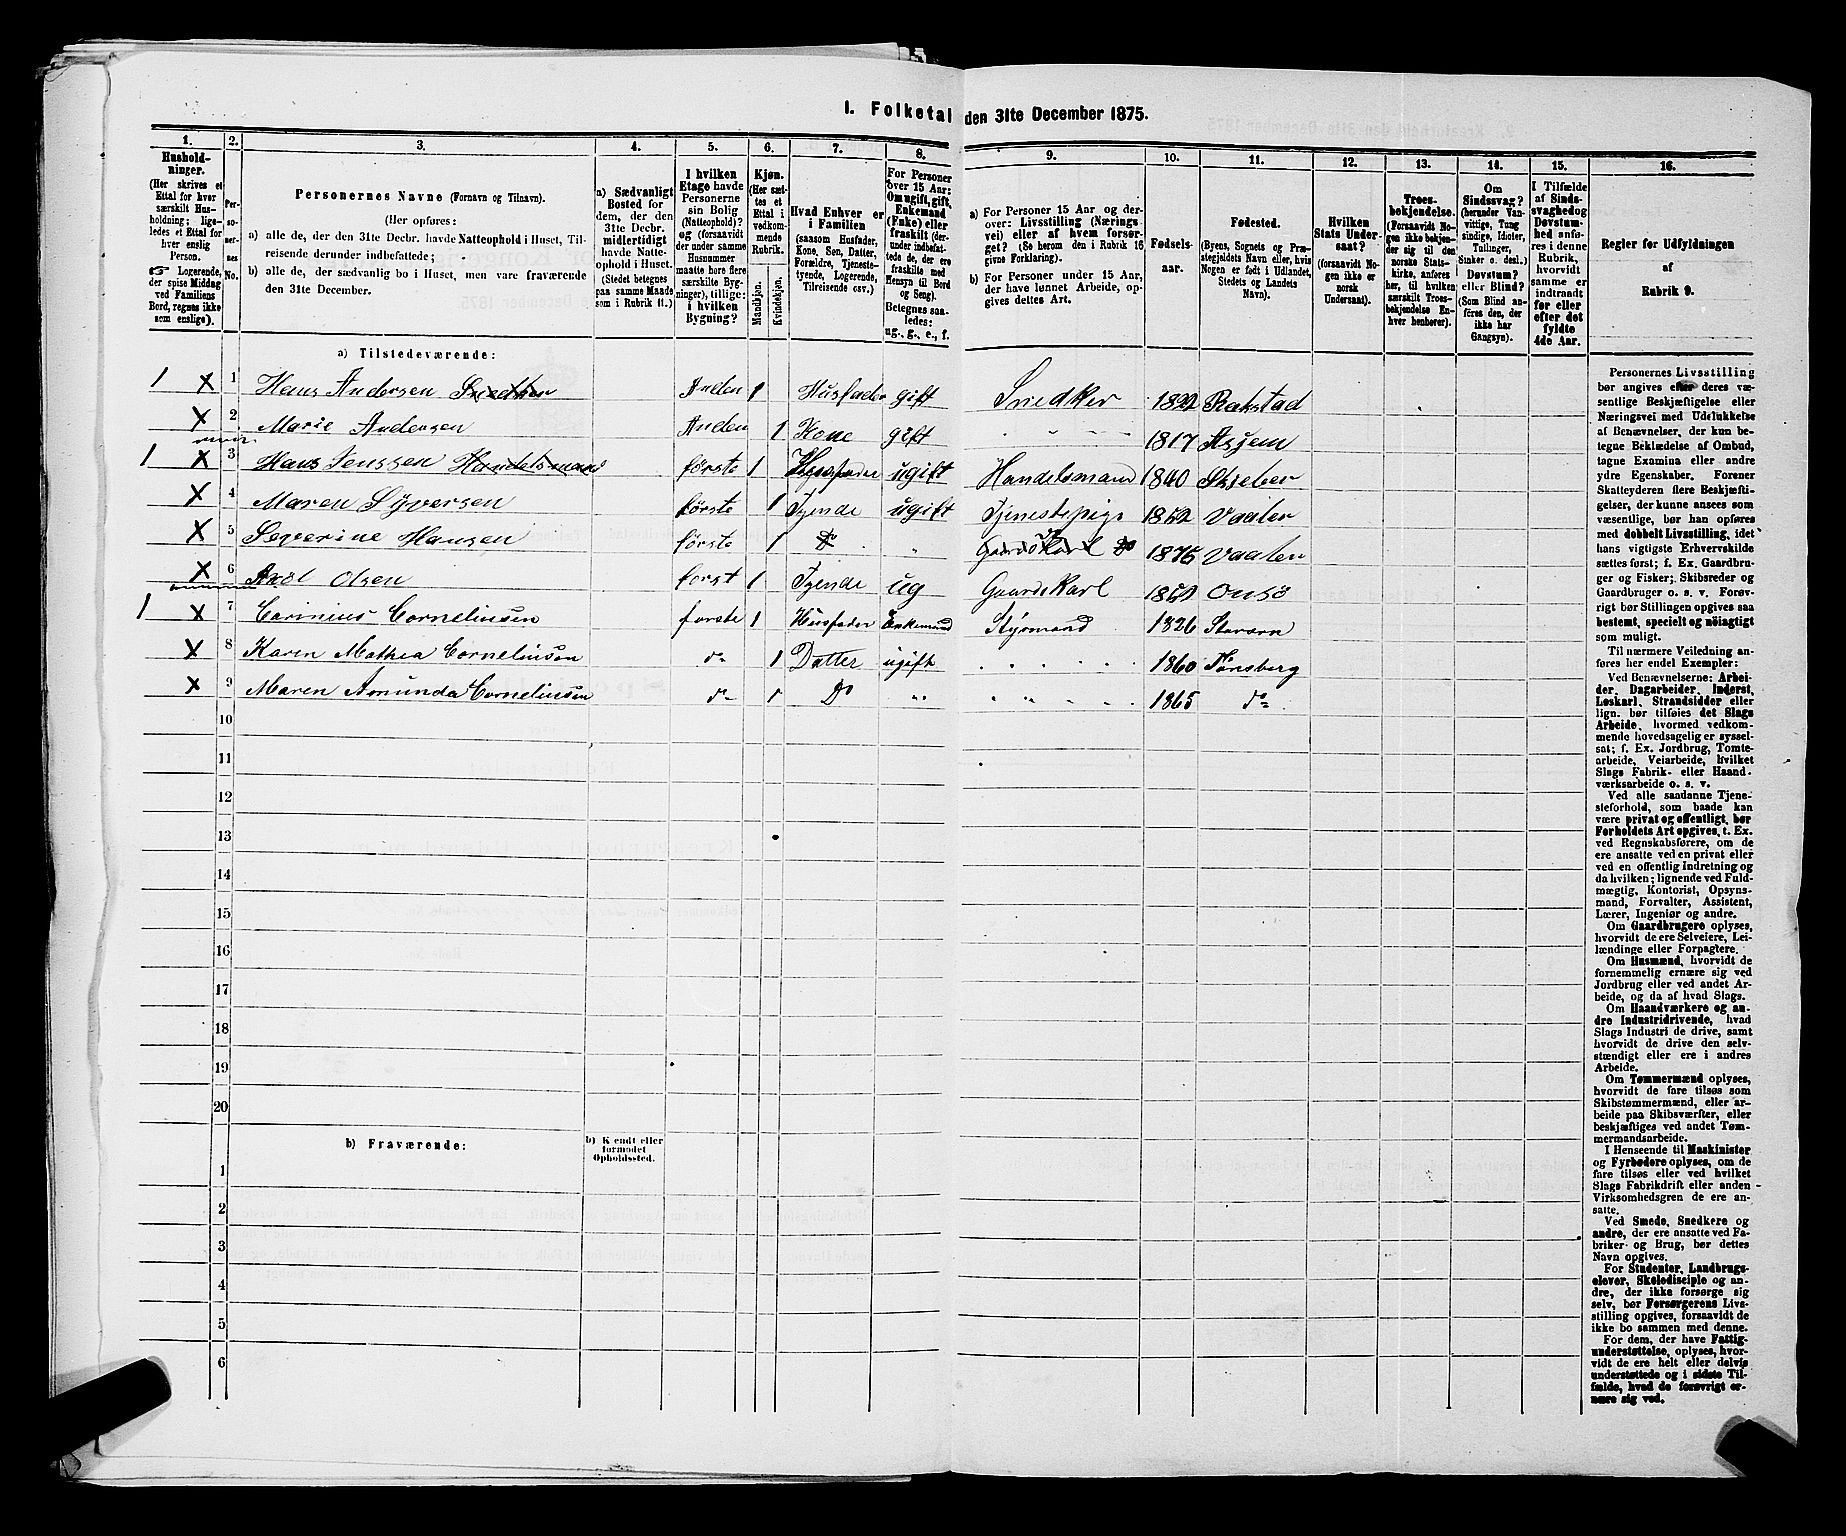 I. Folketal den 31te December 1875.
1. 2. 3. 4. 5. 6. 7. 8. 9. 10. 11. 12. 13. 14. 15. 16.
Hushold-
ninger.
(Her skrives et
Ettal for hver
særskilt Hus-
holdning; lige-
ledes et Ettal for
hver enslig
Person.
☞ Logerende,
der spise Middag
ved Familiens
Bord, regnes ikke
som enslige).
Per-
so-
ner-
nes
No.
Personernes Navne (Fornavn og Tilnavn).
(Her opføres:
a) alle de, der den 31te Decbr. havde Natteophold i Huset, Til-
reisende derunder indbefattede;
b) alle de, der sædvanlig bo i Huset, men vare fraværende
den 31te December.
a) Sædvanligt
Bosted for
dem, der den
31te Decbr.
midlertidigt
havde Natte-
ophold i Huset.
(Stedet betegnes
paa samme Maade
som i Rubrik 11.)
I hvilken
Etage havde
Personerne
sin Bolig
(Natteophold)?
og (forsaavidt
der under samme
Husnummer
maatte høre flere
særskilte Byg-
ninger), tillige:
i hvilken
Bygning?
Kjøn.
(Her sæt-
tes et
Ettal i
vedkom-
mende
Rubrik.
Mandkjøn.
Kvindekjøn.
Hvad Enhver er
i Familien
(saasom Husfader,
Kone, Søn, Datter,
Forældre, Tjeneste-
tyende, Logerende,
Tilreisende osv.)
For Personer
over 15 Aar:
Om ugift, gift,
Enkemand
(Enke) eller
fraskilt (der-
under indbefat-
tede de, der ere
fraskilte med
Hensyn til Bord
og Seng).
Betegnes saa-
ledes:
ug., g., e., f.
a) For Personer 15 Aar og der-
over: Livsstilling (Nærings-
vei) eller af hvem forsør-
get? (Se herom den i Rubrik 16
givne Forklaring).
b) For Personer under 15 Aar,
der have lønnet Arbeide, op-
gives dettes Art.
Fødsels-
aar.
Fødested.
(Byens, Sognets og Præ-
stegjeldets Navn eller, hvis
Nogen er født i Udlandet,
Stedets og Landets
Navn).
Hvilken
Stats Under-
saat?
(forsaavidt No-
gen ikke er
norsk
Undersaat).
Troes-
bekjendelse.
(Forsaavidt No-
gen ikke bekjen-
der sig til den
norske Stats-
kirke, anføres
her, til hvilken
særskilt Troes-
bekjendelse En-
hver henhører).
Om
Sindssvag?
(herunder Van-
vittige, Tung
sindige, Idioter,
Tullinger,
Sinker o. desl.)
Døvstum?
eller Blind?
(Som Blind an-
føres den, der
ikke har
Gangsyn).
I Tilfælde
af Sinds-
svaghed og
Døvstum-
hed anfø-
res i denne
Rubrik,
hvorvidt
samme er
indtraadt
før eller
efter det
fyldte
4de Aar.
Regler for Udfyldningen
af
Rubrik 9.
a) Tilstedeværende:
1 X 1 Hans Andersen Snedker Anden 1 Husfader gift Snedker Rakstad
X 2 Marie Andersen Anden 1 Kone gift 1817 Asjem
1 X 3 Hans Jenssen Handelsmand første 1 Husfader ugift Handelsmand 1840 Skjeber
X 4 Maren Syversen første 1 Tjende ugift Tjenestepige 1852 Vaaler
X 5 Severine Hansen første 1 Do " Gaardskarl Do 1875 Vaaler
X 6 Axöl Olsen forst 1 Tjende ug Gaardskarl Onsö
1 X 7 Carinius Corneliussen forste 1 Husfader Enkemand Styrmand 1826 Stavern
X 8 Karen Mathea Corneliusen do 1 Datter ugift " 1860 Tönsberg
X 9 Maren Amunda Corneliusen do 1 Do " " 1865 do
10
11
12
13
14
15
16
17
18
19
20
b) Fraværende:
b) Kjendt eller
formodet
Opholdssted.
1
2
3
4
5
6
Personernes Livsstilling
bør angives efter deres væ-
sentlige Beskjæftigelse eller
Næringsvei med Udelukkelse
af Benævnelser, der kun be-
tegne Beklædelse af Ombud,
tagne Examina eller andre
ydre Egenskaber. Forener
Skatteyderen flere Beskjæfti-
gelser, der kunne ansees som
væsentlige, bør han opføres
med dobbelt Livsstilling, idet
hans vigtigste Erhvervskilde
sættes først; f. Ex. Gaardbru-
ger og Fisker; Skibsreder og
Gaardbruger o. s. v. Forøv-
rigt bør Stillingen opgives saa
bestemt, specielt og nøiagtigt
som muligt.
Til nærmere Veiledning an-
føres her endel Exempler:
Ved Benævnelserne: Arbei-
der, Dagarbeider, Inderst,
Løskarl, Strandsidder eller
lign. bør tilføies det Slags
Arbeide, hvormed vedkom-
mende hovedsagelig er syssel-
sat; f. Ex. Jordbrug, Tomte-
arbeide, Veiarbeide, hvilket
Slags Fabrik- eller Haand-
værksarbeide o. s. v.
Ved alle saadanne Tjene-
steforhold, som baade kan
være privat og offentligt, bør
Forholdets Art opgives, t. Ex.
ved Regnskabsførere, om de
ere ansatte ved en privat eller
ved en offentlig Indretning og
da hvilken; lignende ved Fuld-
mægtig, Kontorist, Opsyns-
mand, Forvalter, Assistent,
Lærer, Ingeniør og andre.
Om Gaardbrugere oplyses,
hvorvidt de ere Selveiere, Lei-
lændinge eller Forpagtere.
Om Husmænd, hvorvidt de
fornemmelig ernære sig ved
Jordbrug eller ved andet Ar-
beide, og da af hvad Slags.
Om Haandværkere og an-
dre Industridrivende, hvad
Slags Industri de drive, samt
hvorvidt de drive den selv-
stændigt eller ere i andres
Arbeide.
Om Tømmermænd oplyses,
hvorvidt de fare tilsøs som
Skibstømmermænd, eller ar-
beide paa Skibsværfter, eller
beskjæftiges ved andet Tøm-
mermandsarbeide.
I Henseende til Maskinister
og Fyrbødere oplyses, om de
fare tilsøs eller ved hvilket
Slags Fabrikdrift eller anden
Virksomhedsgren de ere an-
satte.
Ved Smede, Snedkere og
andre, der ere ansatte ved Fa-
briker- og Brug, bør dettes
Navn opgives.
For Studenter, Landbrugs-
elever, Skoledisciple og an-
dre, der ikke forsørge sig
selv, bør Forsørgerens Livs-
stilling opgives, forsaavidt de
ikke bo sammen med denne.
For dem, der have Fattig-
understøttelse, oplyses, hvor-
vidt de ere helt eller delvis
understøttede og i sidste Til-
fælde, hvad de forøvrigt er-
nære sig ved.